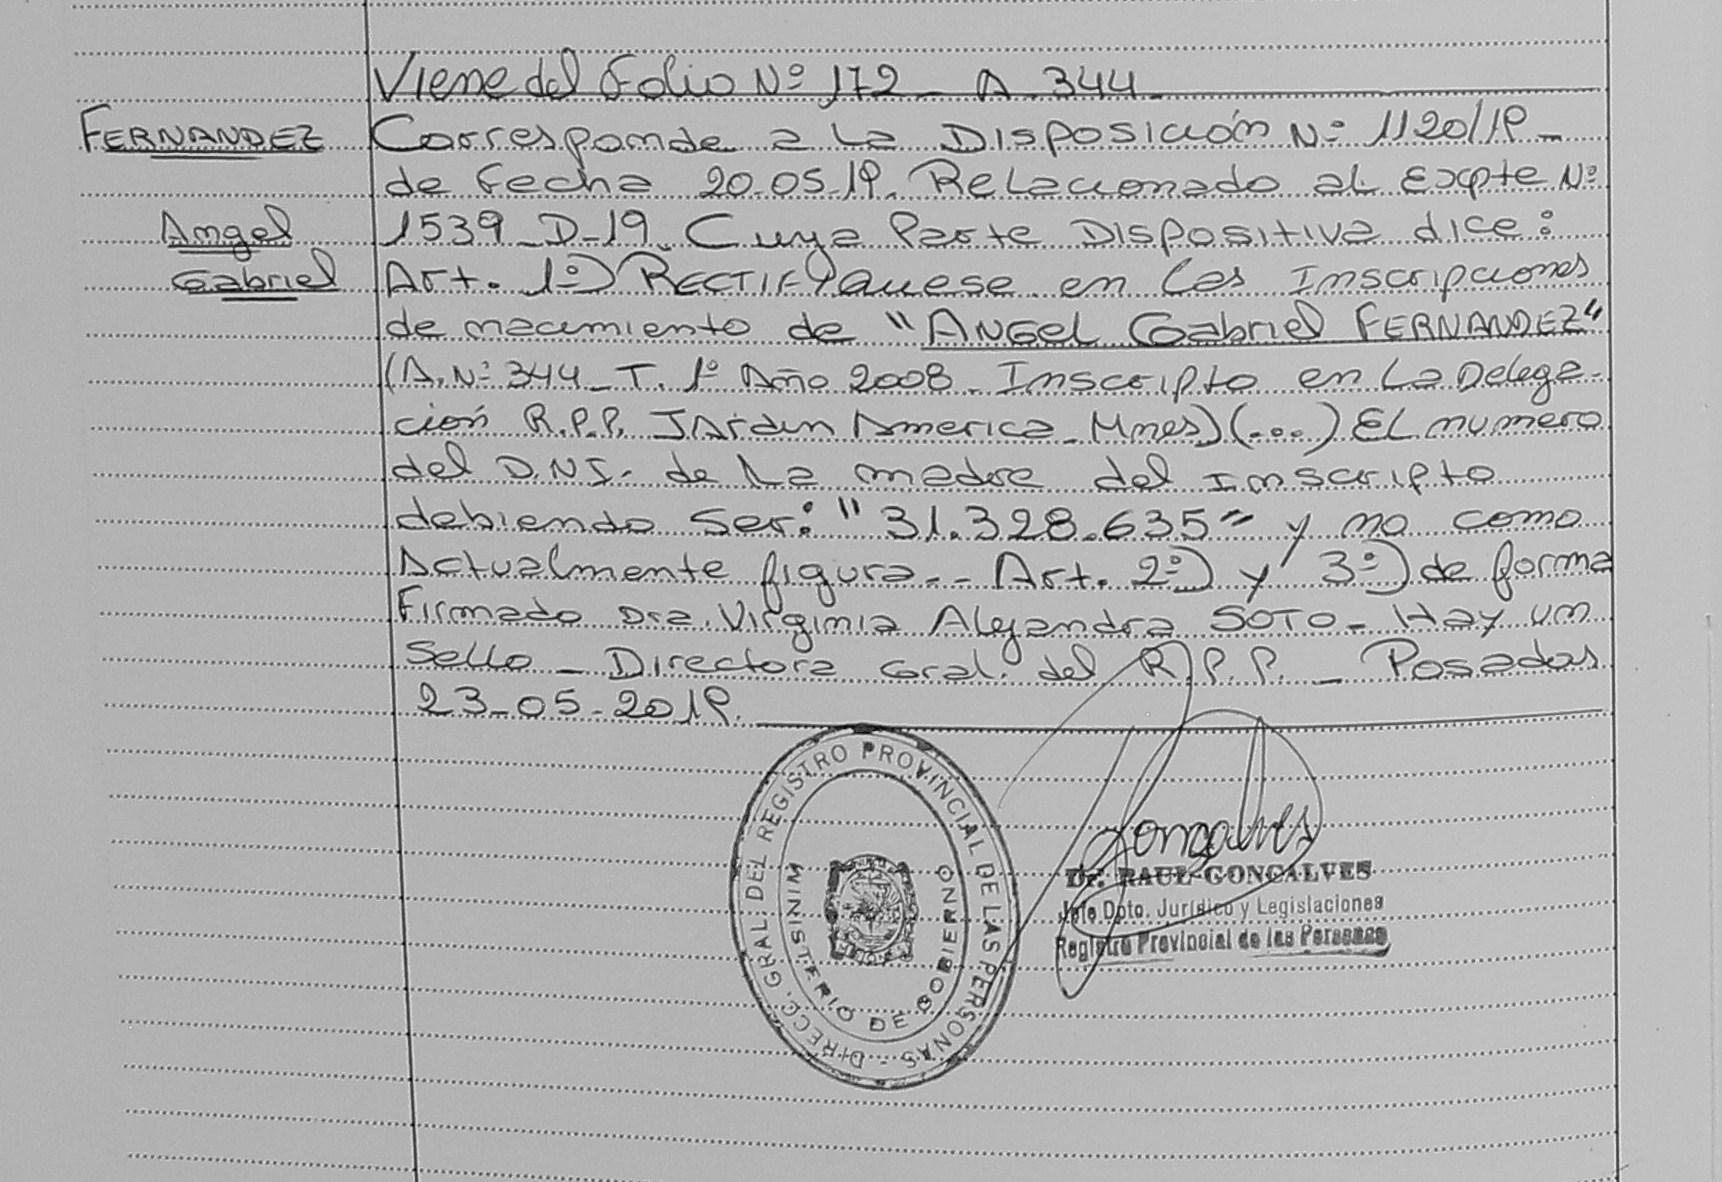 Viene del Folio Nº 172 - A. 344.
FERNANDEZ Corresponde a La Disposición Nº 1120/19 -
de fecha 20.05.19. Relacionado al Expte Nº
Angel 1539-D-19. Cuya Parte Dispositiva dice:
Gabriel Art. 1º) RECTIFIQUESE en las Inscripciones
de nacimiento de "ANGEL Gabriel FERNANDEZ"
(A. Nº 344 - T. 1º Año 2008 - Inscripto en La Delega-
ción R.P.P. JArdin America - Mnes) (...) EL numero
del D.N.I. de La madre del Inscripto
debiendo ser: "31.328.635" y no como
Actualmente figura. - Art. 2º) y 3º) de forma
Firmado Dra. Virginia Alejandra SOTO - Hay un
Sello - Directora Gral. del R.P.P. - Posadas
23-05-2019.
DIRECC. GRAL. DEL REGISTRO PROVINCIAL DE LAS PERSONAS -
MINISTERIO DE GOBIERNO
Gonçalves
Dr. RAUL GONCALVES
Jefe Dpto. Jurídico y Legislaciones
Registro Provincial de las Personas